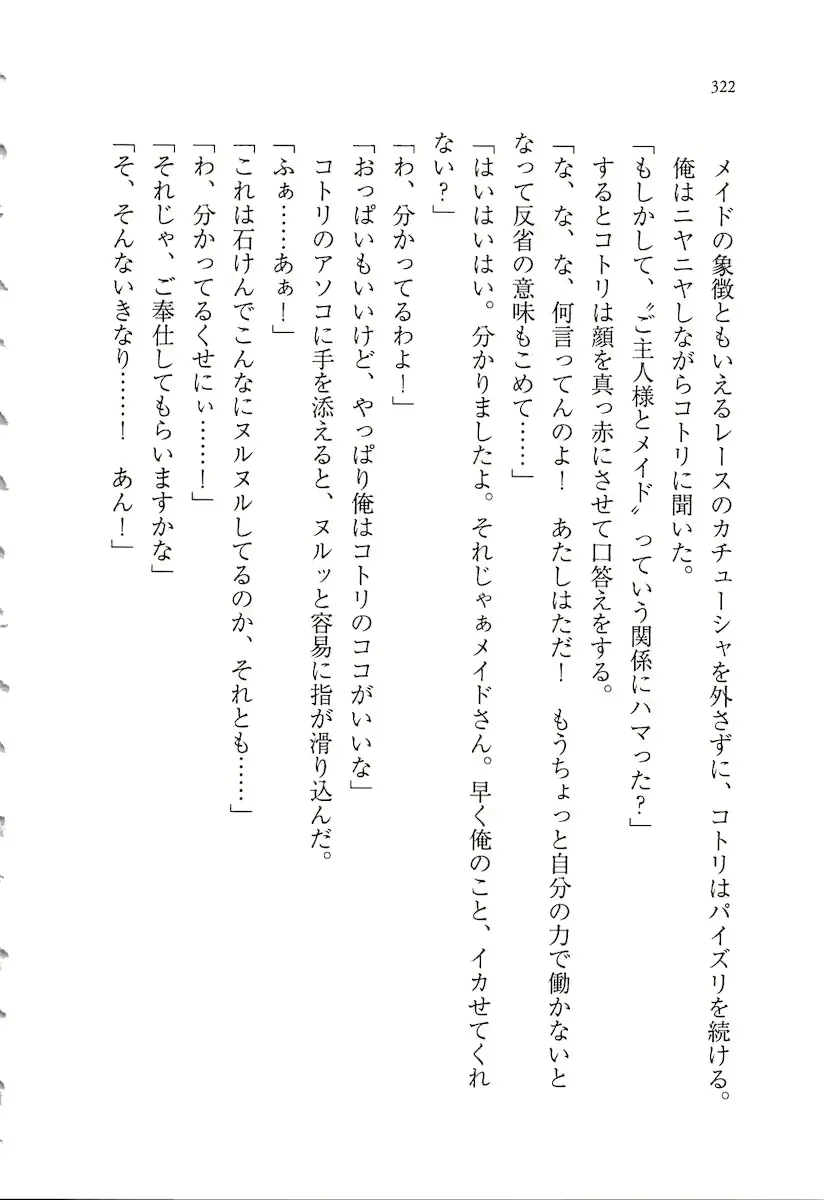 322
メイドの象徴ともいえるレースのカチューシャを外さずに、コトリはパイズリを続ける。
俺はニヤニヤしながらコトリに聞いた。
「もしかして、〝ご主人様とメイド〟っていう関係にハマった？」
するとコトリは顔を真っ赤にさせて口答えをする。
「な、な、な、何言ってんのよ！　あたしはただ！　もうちょっと自分の力で働かないと
なって反省の意味もこめて……」
「はいはいはい。分かりましたよ。それじゃぁメイドさん。早く俺のこと、イカせてくれ
ない？」
「わ、分かってるわよ！」
「おっぱいもいいけど、やっぱり俺はコトリのココがいいな」
コトリのアソコに手を添えると、ヌルッと容易に指が滑り込んだ。
「ふぁ……あぁ！」
「これは石けんでこんなにヌルヌルしてるのか、それとも……」
「わ、分かってるくせにぃ……！」
「それじゃ、ご奉仕してもらいますかな」
「そ、そんないきなり……！　あん！」